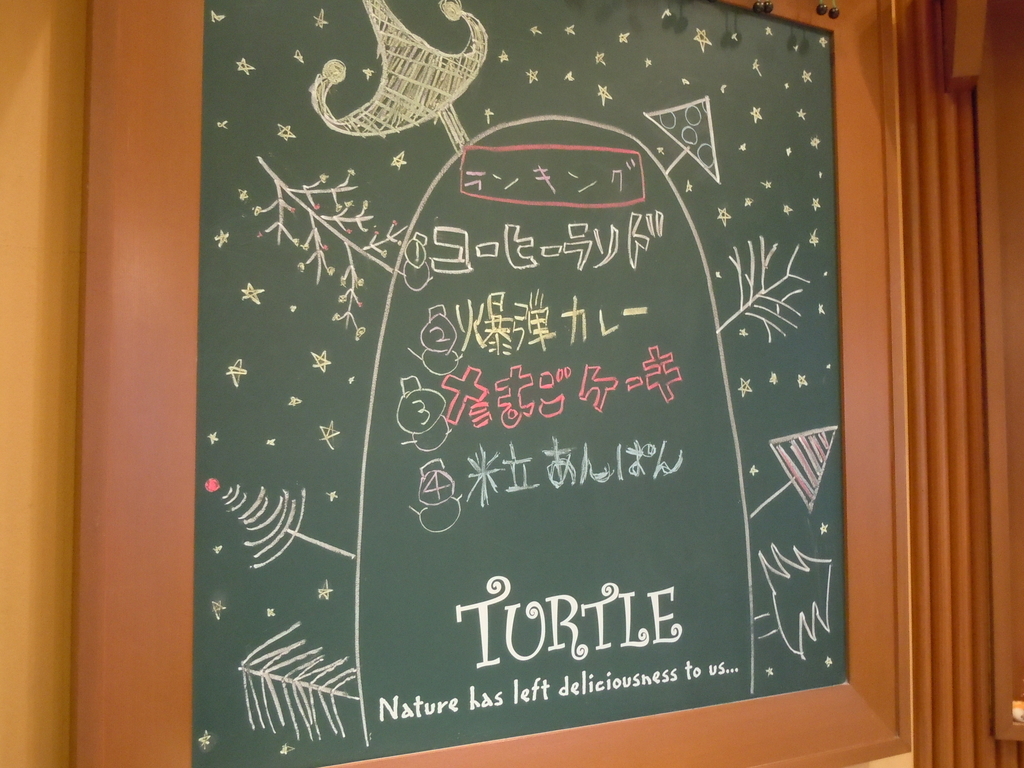 ランキング
① コーヒーランド
② 爆弾カレー
③ たまごケーキ
④ 粒あんぱん
TURTLE
Nature has left deliciousness to us...